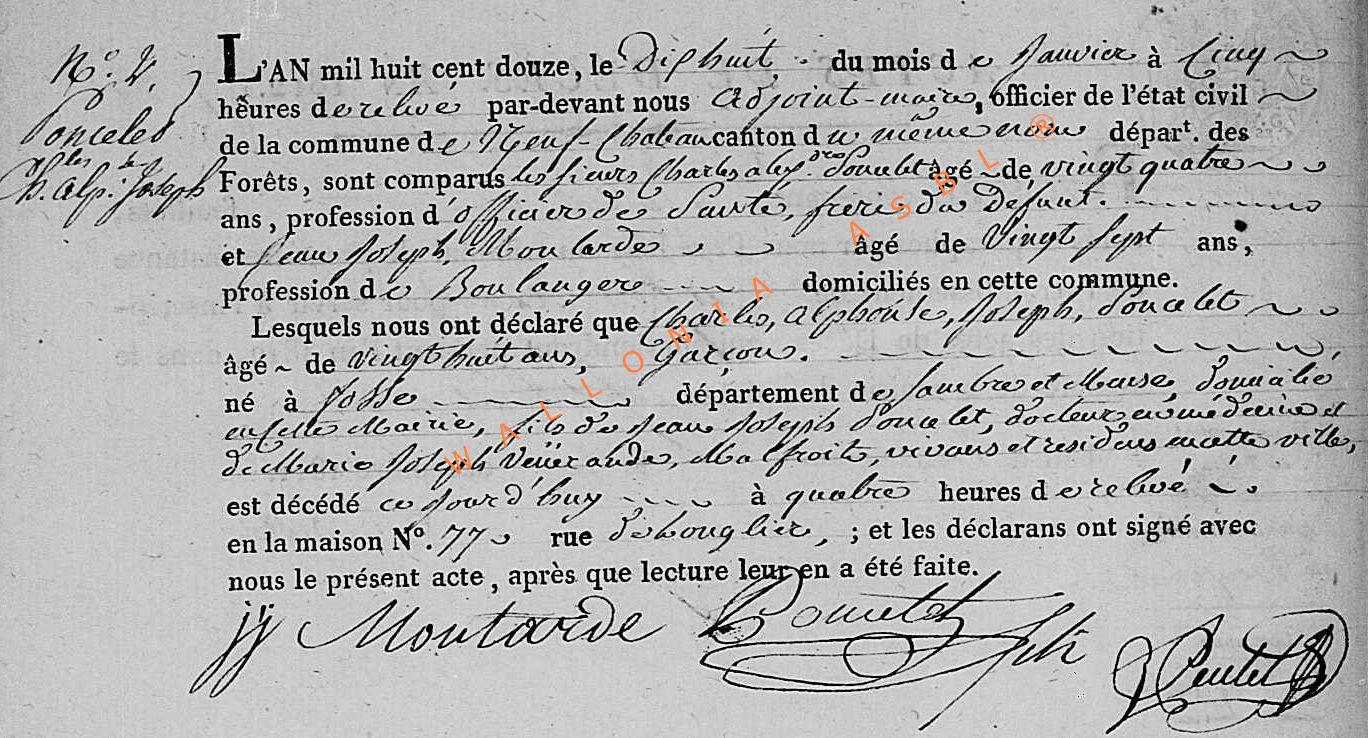 Nº. 2.
Poncelet
Ch.les Alp. Joseph
L'AN mil huit cent douze, le Dixhuit du mois de Janvier à Cinq
heures de relivé par-devant nous adjoint-maire, officier de l'état civil
de la commune de Neuf-Chateau canton du même nom départ. des
Forêts, sont comparus les sieurs Charles alex.dre Poncelet âgé de vingt quatre
ans, profession d'officier de Santé, frere du Defunt.
et Jean Joseph, Moutarde âgé de Vingt Sept ans,
profession de Boulangere domiciliés en cette commune.
Lesquels nous ont déclaré que Charles, Alphonse, Joseph, Poncelet
âgé de vingt huit ans, Garçon.
né à Fosse département de Sambre et Meuse, domicilié
en cette Mairie, fils de Jean Joseph Poncelet, docteur en médecine et
de Marie Joseph Vénérande, Malfroite, vivans et residens en cette ville,
est décédé ce jour d'huy à quatre heures de relivé
en la maison Nº. 77 rue ; et les déclarans ont signé avec
nous le présent acte, après que lecture leur en a été faite.
jj Moutarde Poncelet fils
WALLONIA ASBL ®